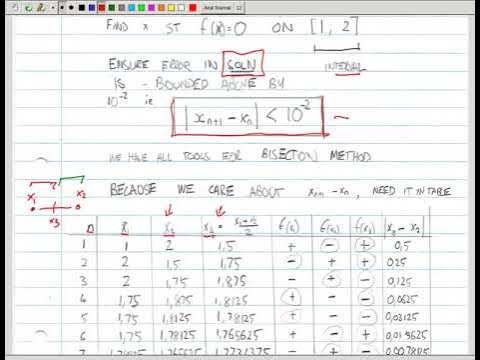 Arial Normal 12
FIND x ST f(x)=0 ON [1, 2]
ENSURE ERROR IN SOLN INTERVAL
IS - BOUNDED ABOVE BY
10^-2 ie |x_{n+1} - x_n| < 10^-2
WE HAVE ALL TOOLS FOR BISECTION METHOD
BECAUSE WE CARE ABOUT x_{n+1} - x_n, NEED IT IN TABLE
x_1 x_2
x_3
n x_1 x_2 x_3 = (x_1+x_2)/2 f(x_1) f(x_2) f(x_3) |x_3 - x_2|
1 1 2 1,5 + - + 0,5
2 2 1,5 1,75 - + + 0,25
3 2 1,75 1,875 - + - 0,125
4 1,75 1,875 1,8125 + - - 0,0625
5 1,75 1,8125 1,78125 + - - 0,03125
6 1,75 1,78125 1,765625 + - + 0,015625
7 1,78125 1,765625 1,7734375 - + + 0,0078125